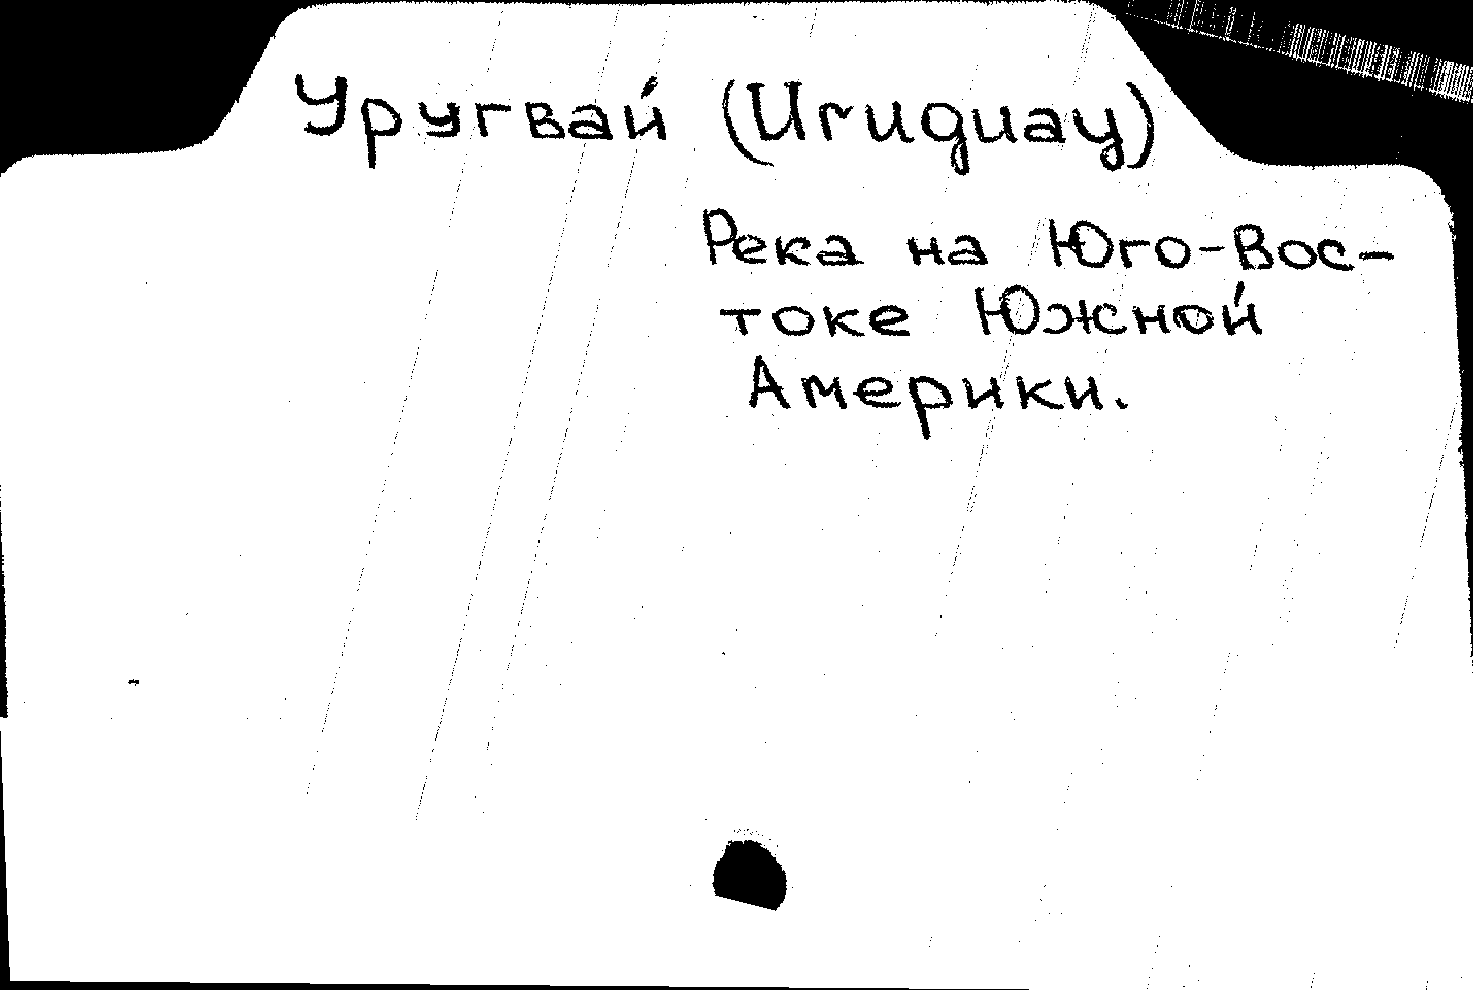 Уругвай (Uruguay)
Река на Юго-Вос-
токе Южной
Америки.